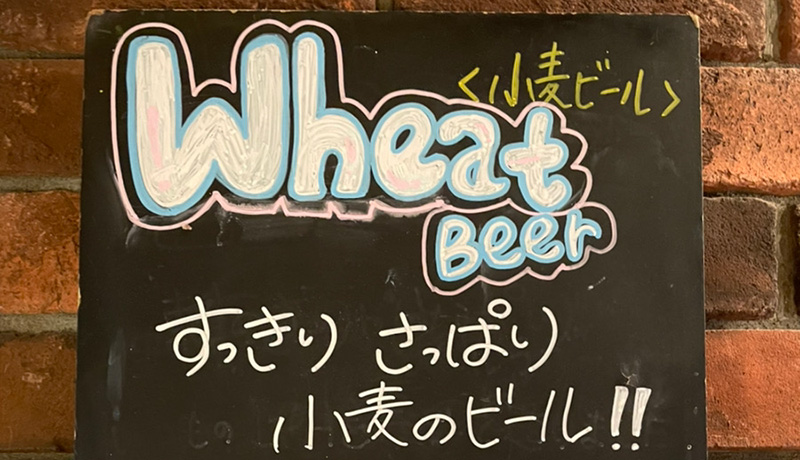 Wheat
<小麦ビール>
Beer
すっきり さっぱり
小麦のビール!!